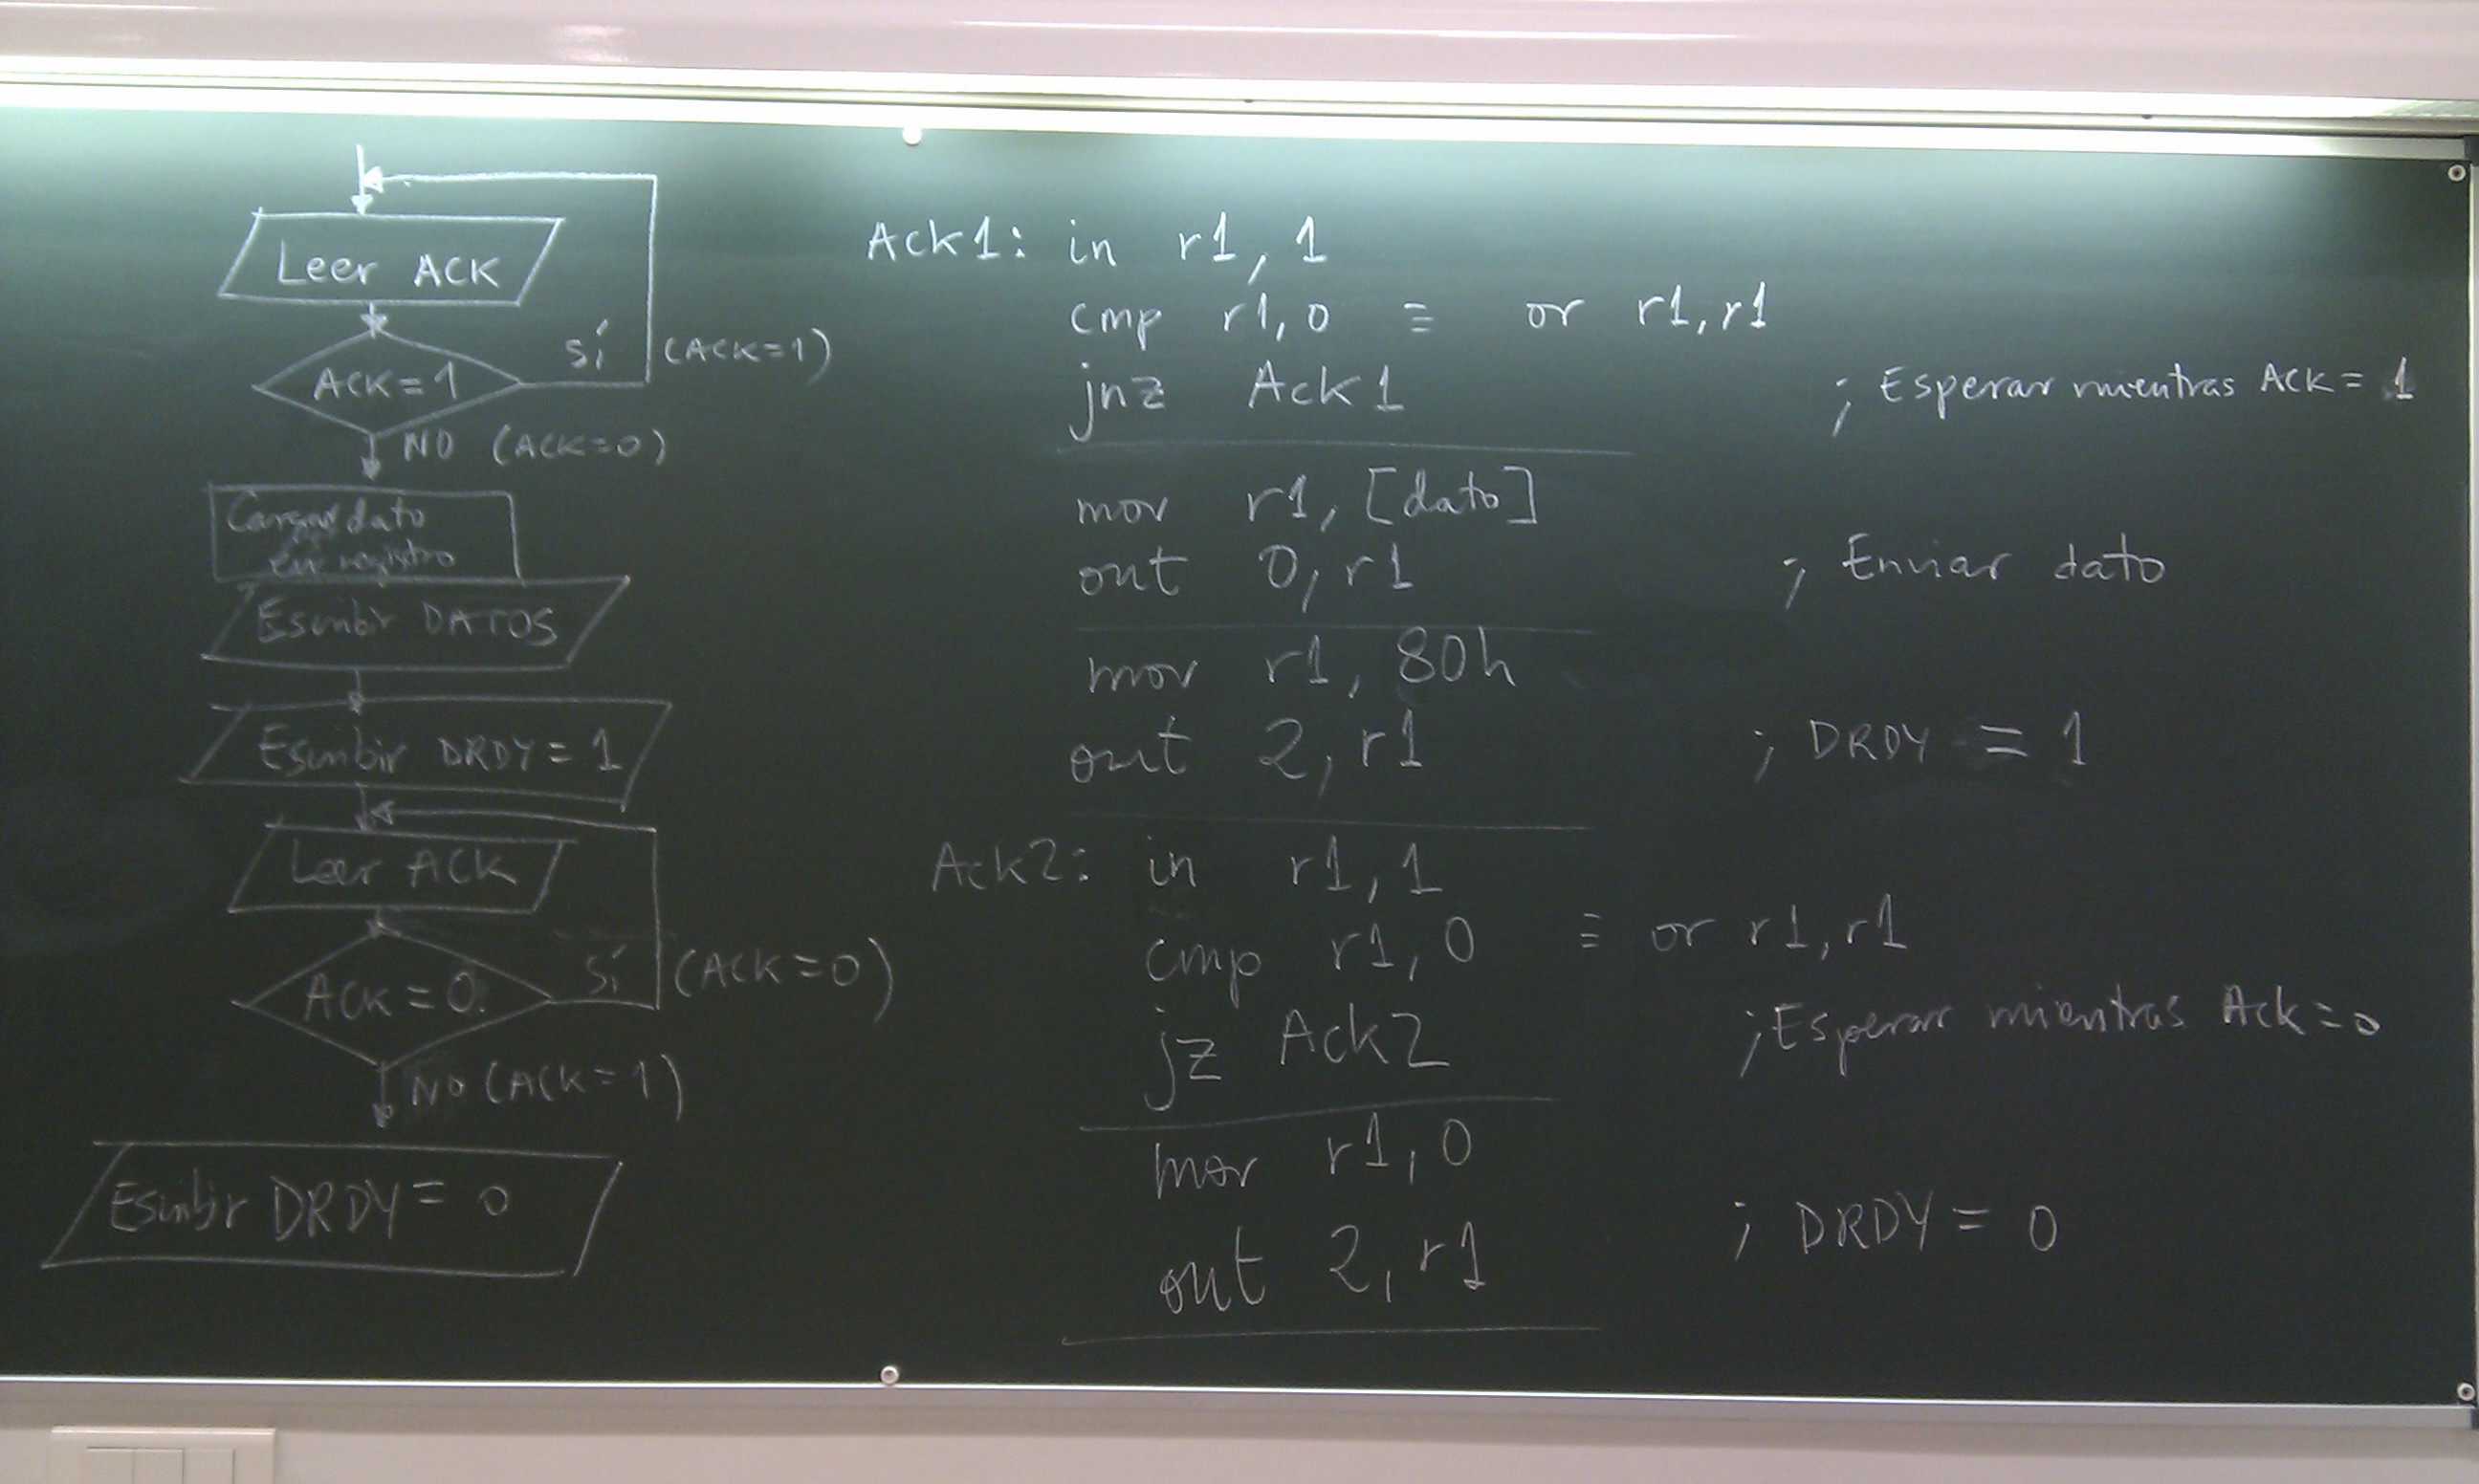 Leer ACK
ACK=1
SÍ
(ACK=1)
NO (ACK=0)
Cargar dato
en registro
Escribir DATOS
Escribir DRDY=1
Leer ACK
ACK=0
SÍ
(ACK=0)
NO (ACK=1)
Escribir DRDY=0
Ack1: in r1, 1
cmp r1,0 ≡ or r1,r1
jnz Ack1 ; Esperar mientras ACK=1
mov r1, [dato]
out 0, r1 ; Enviar dato
mov r1, 80h
out 2, r1 ; DRDY = 1
Ack2: in r1, 1
cmp r1, 0 ≡ or r1, r1
jz Ack2 ; Esperar mientras Ack=0
mov r1, 0
out 2, r1 ; DRDY = 0